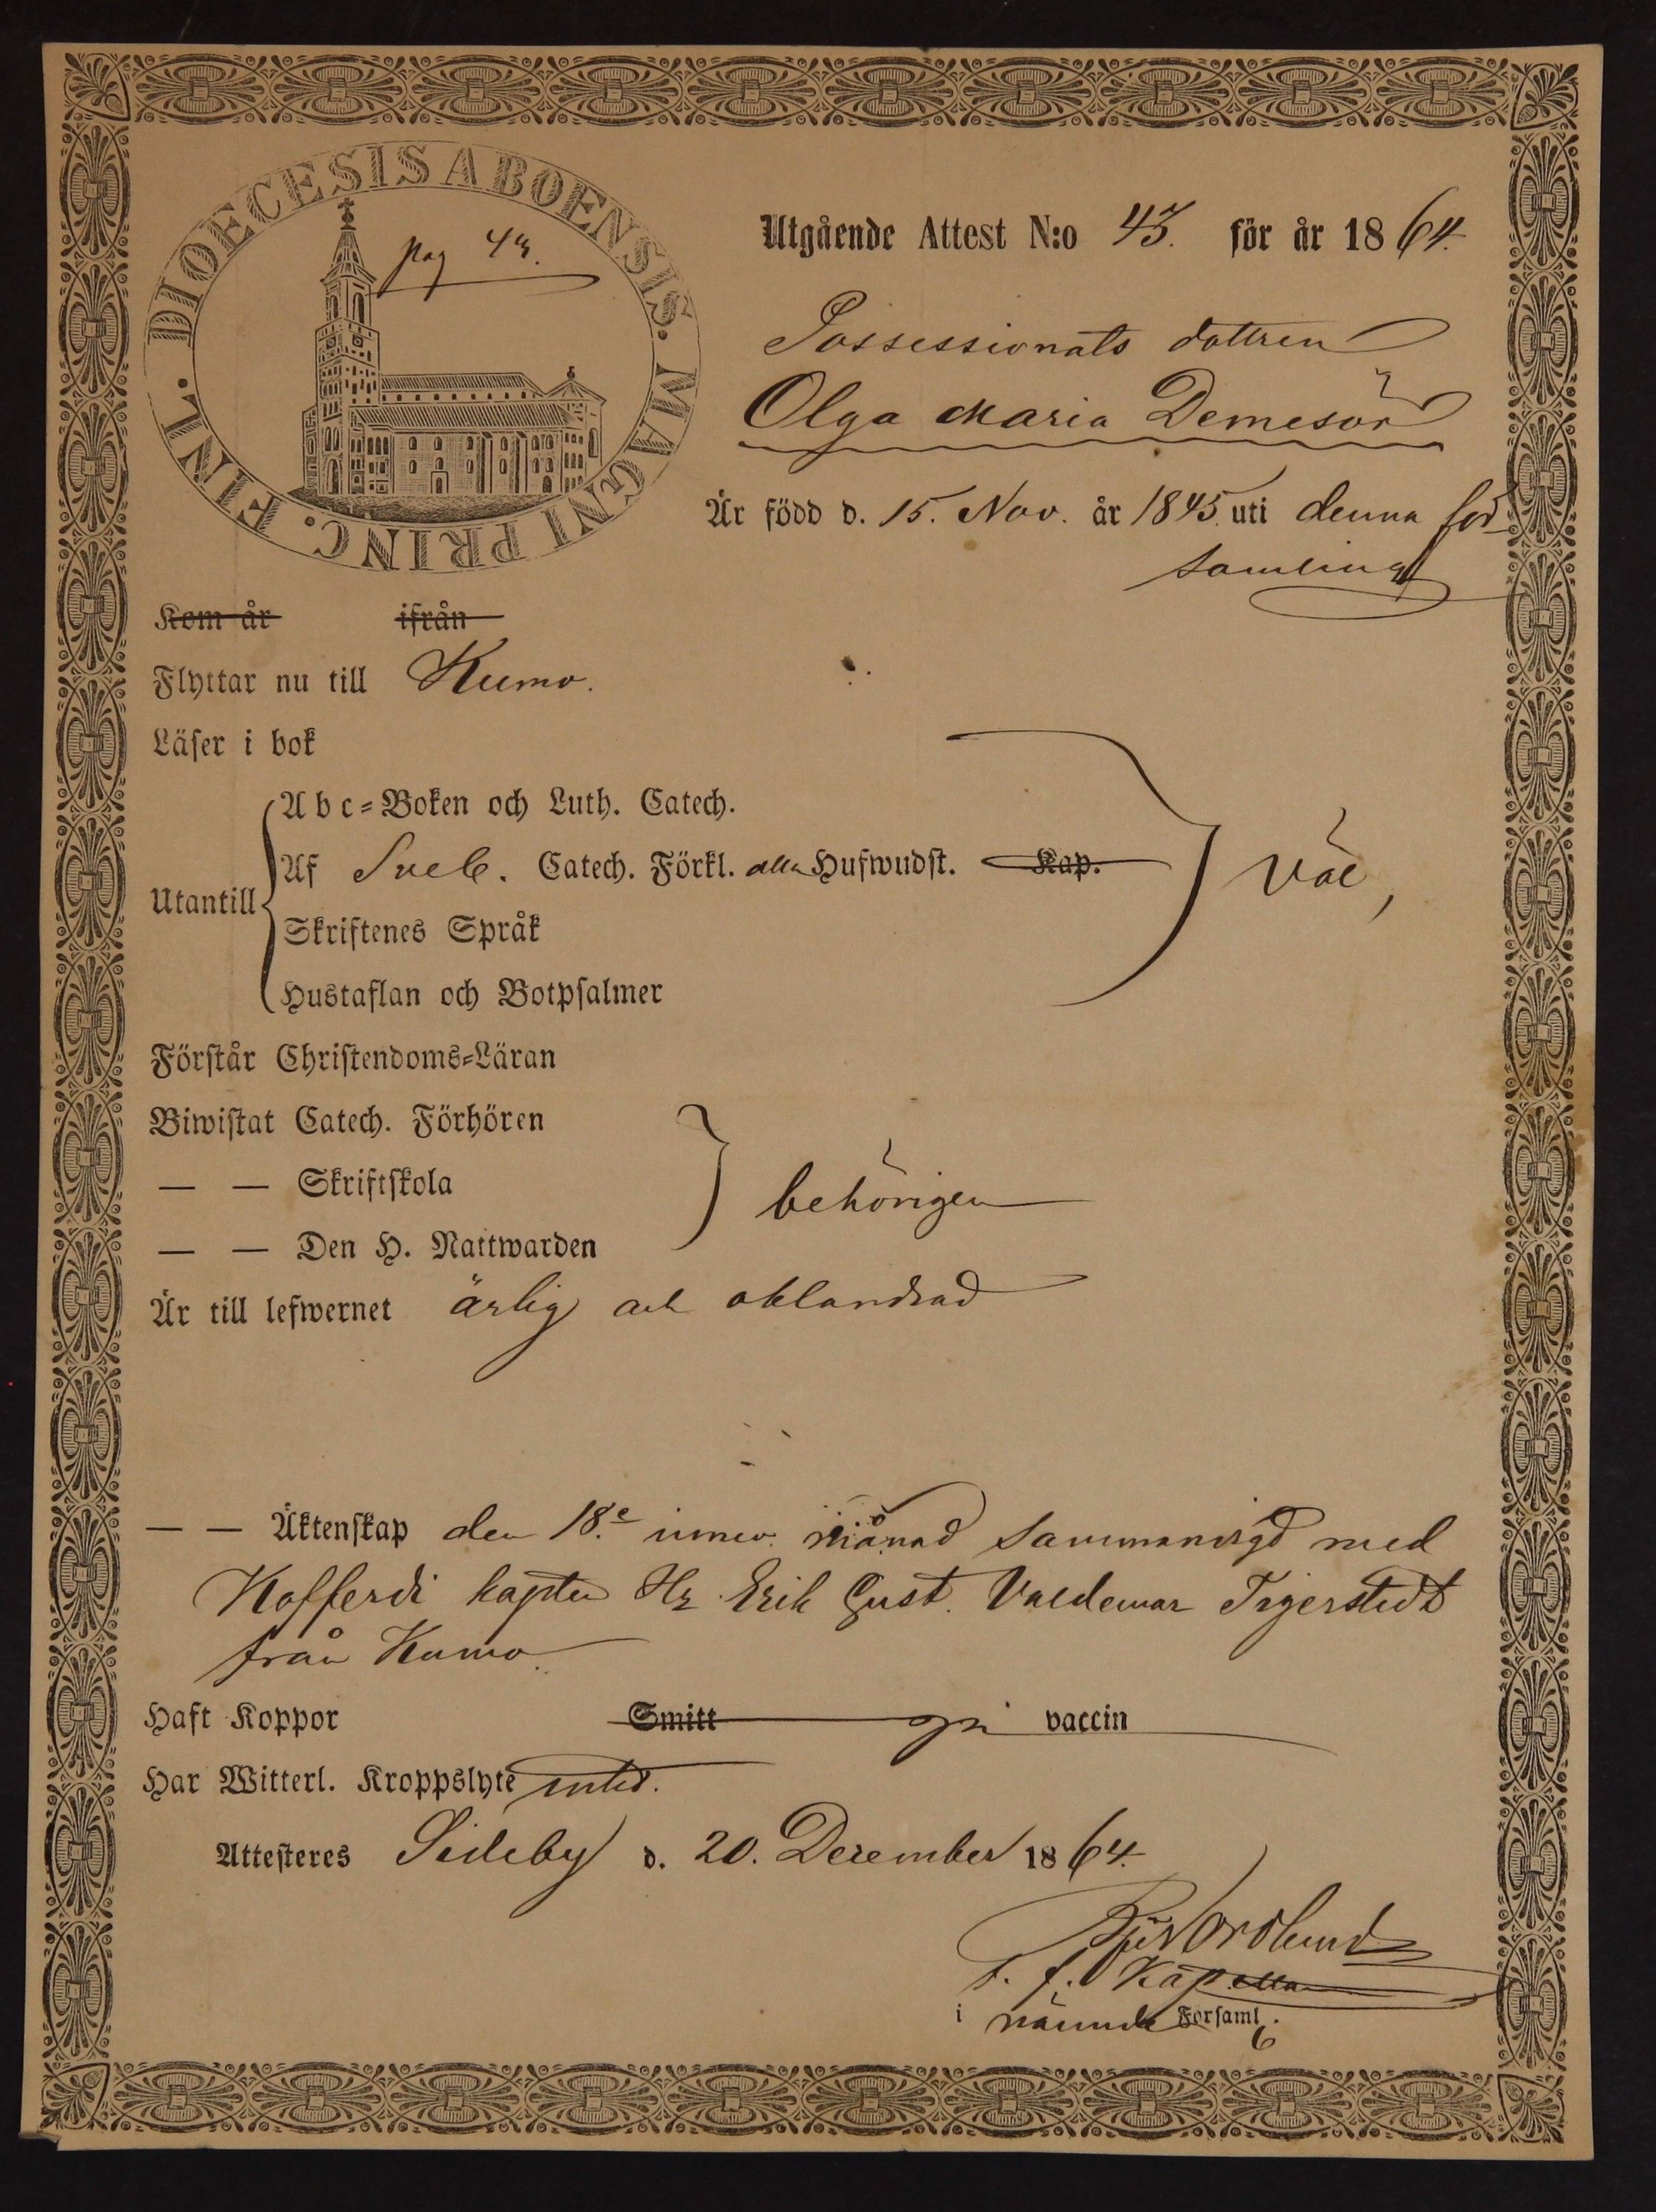 DIOECESIS ABOENSIS. MAGNI PRINC. FINL.
pag 43.
Utgående Attest N:o 43. för år 1864.
Possessionats dottren
Olga Maria Demesör
Är född d. 15. Nov. år 1845. uti denna för
samling
Kom år ifrån
Flyttar nu till Kumo.
Läser i bok
Abc=Boken och Luth. Catech.
Af Sveb. Catech. Förkl. alla Hufwudst. Kap.
Utantill
väl,
Skriftenes Språk
Hustaflan och Botpsalmer
Förstår Christendoms=Läran
Biwistat Catech. Förhören
— — Skriftskola
behörigen
— — Den H. Nattwarden
Är till lefwernet ärlig och oklandrad
— — Äktenskap den 18.e innev. månad sammanvigd med
Kofferdi kapten Hr Erik Gust. Valdemar Tigerstedt
från Kumo.
Haft Koppor Smitt vaccin
Har Witterl. Kroppslyte intet.
Attesteres Sideby d. 20. December 1864.
Nordlund
t. f. Kapellan
i nämnde Forsaml.